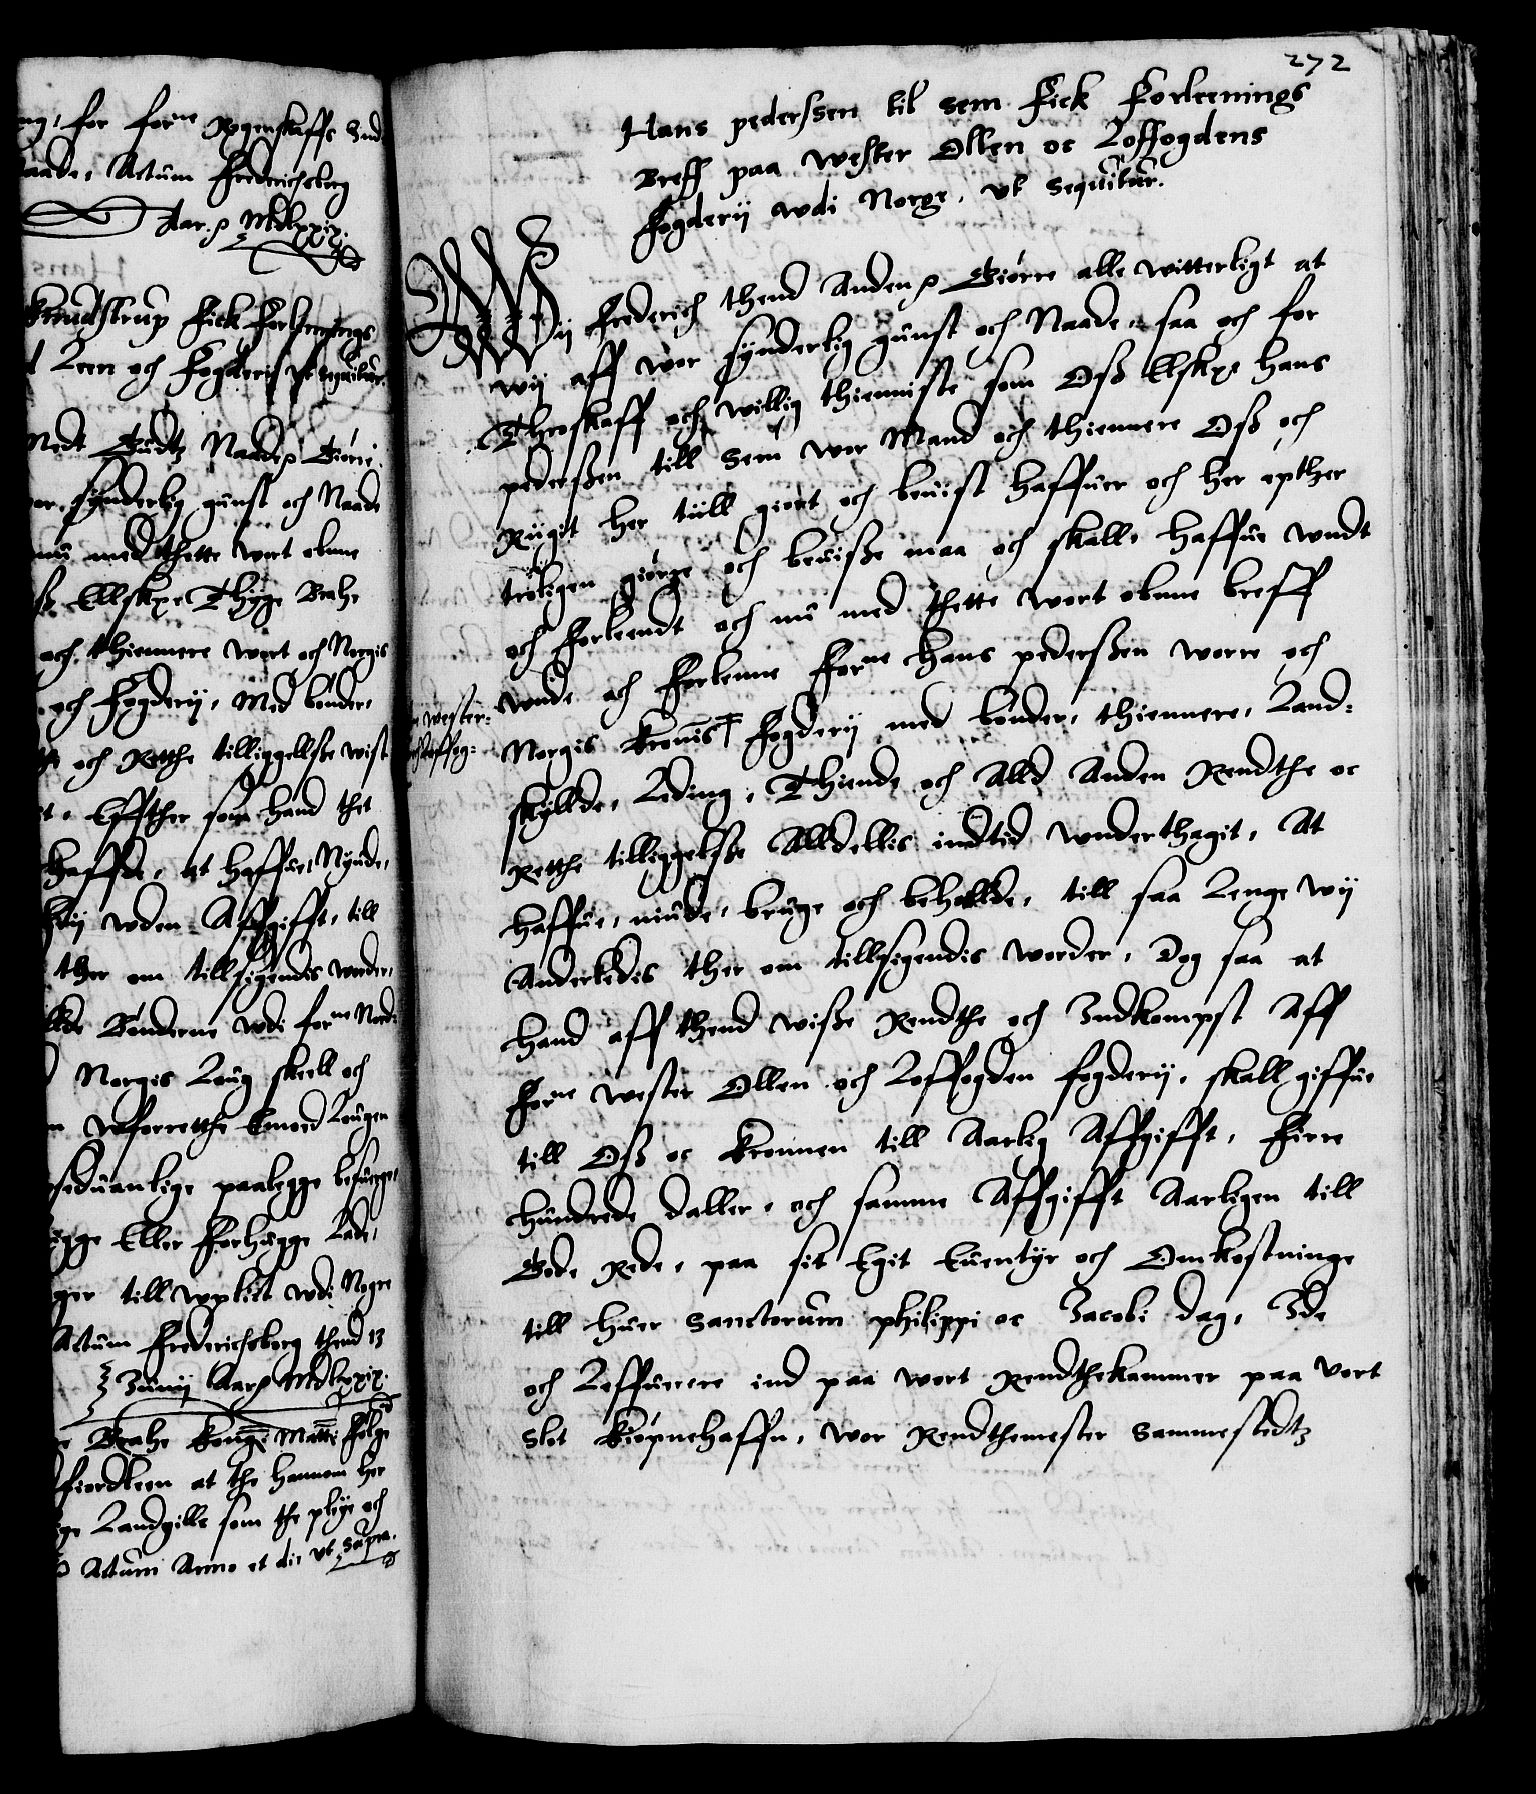 ng, for forne Regenskaffs Ind
aade, Actum Frederichsborg
Aar p MdLxxix.
Knudstrup Fick Forlennings
Leen och Fogderij vt sequitur.
Medt Gudtz Naade p Giøre
vor synderlig gunst och Naade
nu med thette wort obne
ß Elskx. Thyge Brahe
och thiennere wort och Norgis
och Fogderij, Med bønder,
och Retthe tilliggellsse wist
t, Effther som hand thet
haffde, at haffue, Nyude,
uden Affgifft, till
ther om tillsigendis worder,
Bønderne wdi forne Nord-
Norgis Loug skeell och
wforretthe Emod Lougen
seduanlige paalegge besuerge,
ugge Eller Forhugge Lade,
ger till wplict wdi Nogre
Actum Frederichsborg thend 13
Junij Aar p MdLxxix.
Brahe Konge Matts Følge
fiordleen at the hannom her
ge Landgille som the pleye och
Actum Anno et die vt supra.
272
Hans pederssen til Sem Fick Forleenings
Breff paa Wester Ollen oc Loffogdens
Fogderij wdi Norge, vt sequitur.
Wij Frederich thend Anden p Giørre alle witterligt at
wij aff wor synderlig gunst och Naade, saa och for
Throskaff och willig thienniste som Oß Elskx. Hans
pederßen till Sem wor Mand och thiennere Oß och
Riigit her tiill giort och beuist haffuer och her epther
troligen giøre och beuiße maa och skall, haffue wndt
och forleendt och nu med thette wort obne breff
wnde och forlenne forne Hans pederßen worre och
Norgis Kronis Fogderij med bønder, thiennere, Land-
wester-
Loffog-
skyllde, Leding, Thiende och Alld Anden Rendthe oc
Retthe tilliggelsße Alldellis indtid wnderthagit, At
haffue, niude, bruge och beholde, till saa Lenge wij
Anderledis ther om tillsigendis worder, Dog saa at
hand aff thend wiße Rendthe och Indkompst Aff
forne Wester Ollen och Loffogden fogderij, skall giffue
till Oß oc Kronnen till Aarlig Affgifft, Firre
hundrede daller, och samme Affgifft Aarligen till
Gode Rede, paa sit Egit Euentyr och Omkostninge
till huer Sanctorum philippi oc Jacobi dag, Ide
och Leffuerere ind paa wort Rendthekammer paa Vort
Slot Kiøpnehaffn, wor Rendthemester Sammestedtz